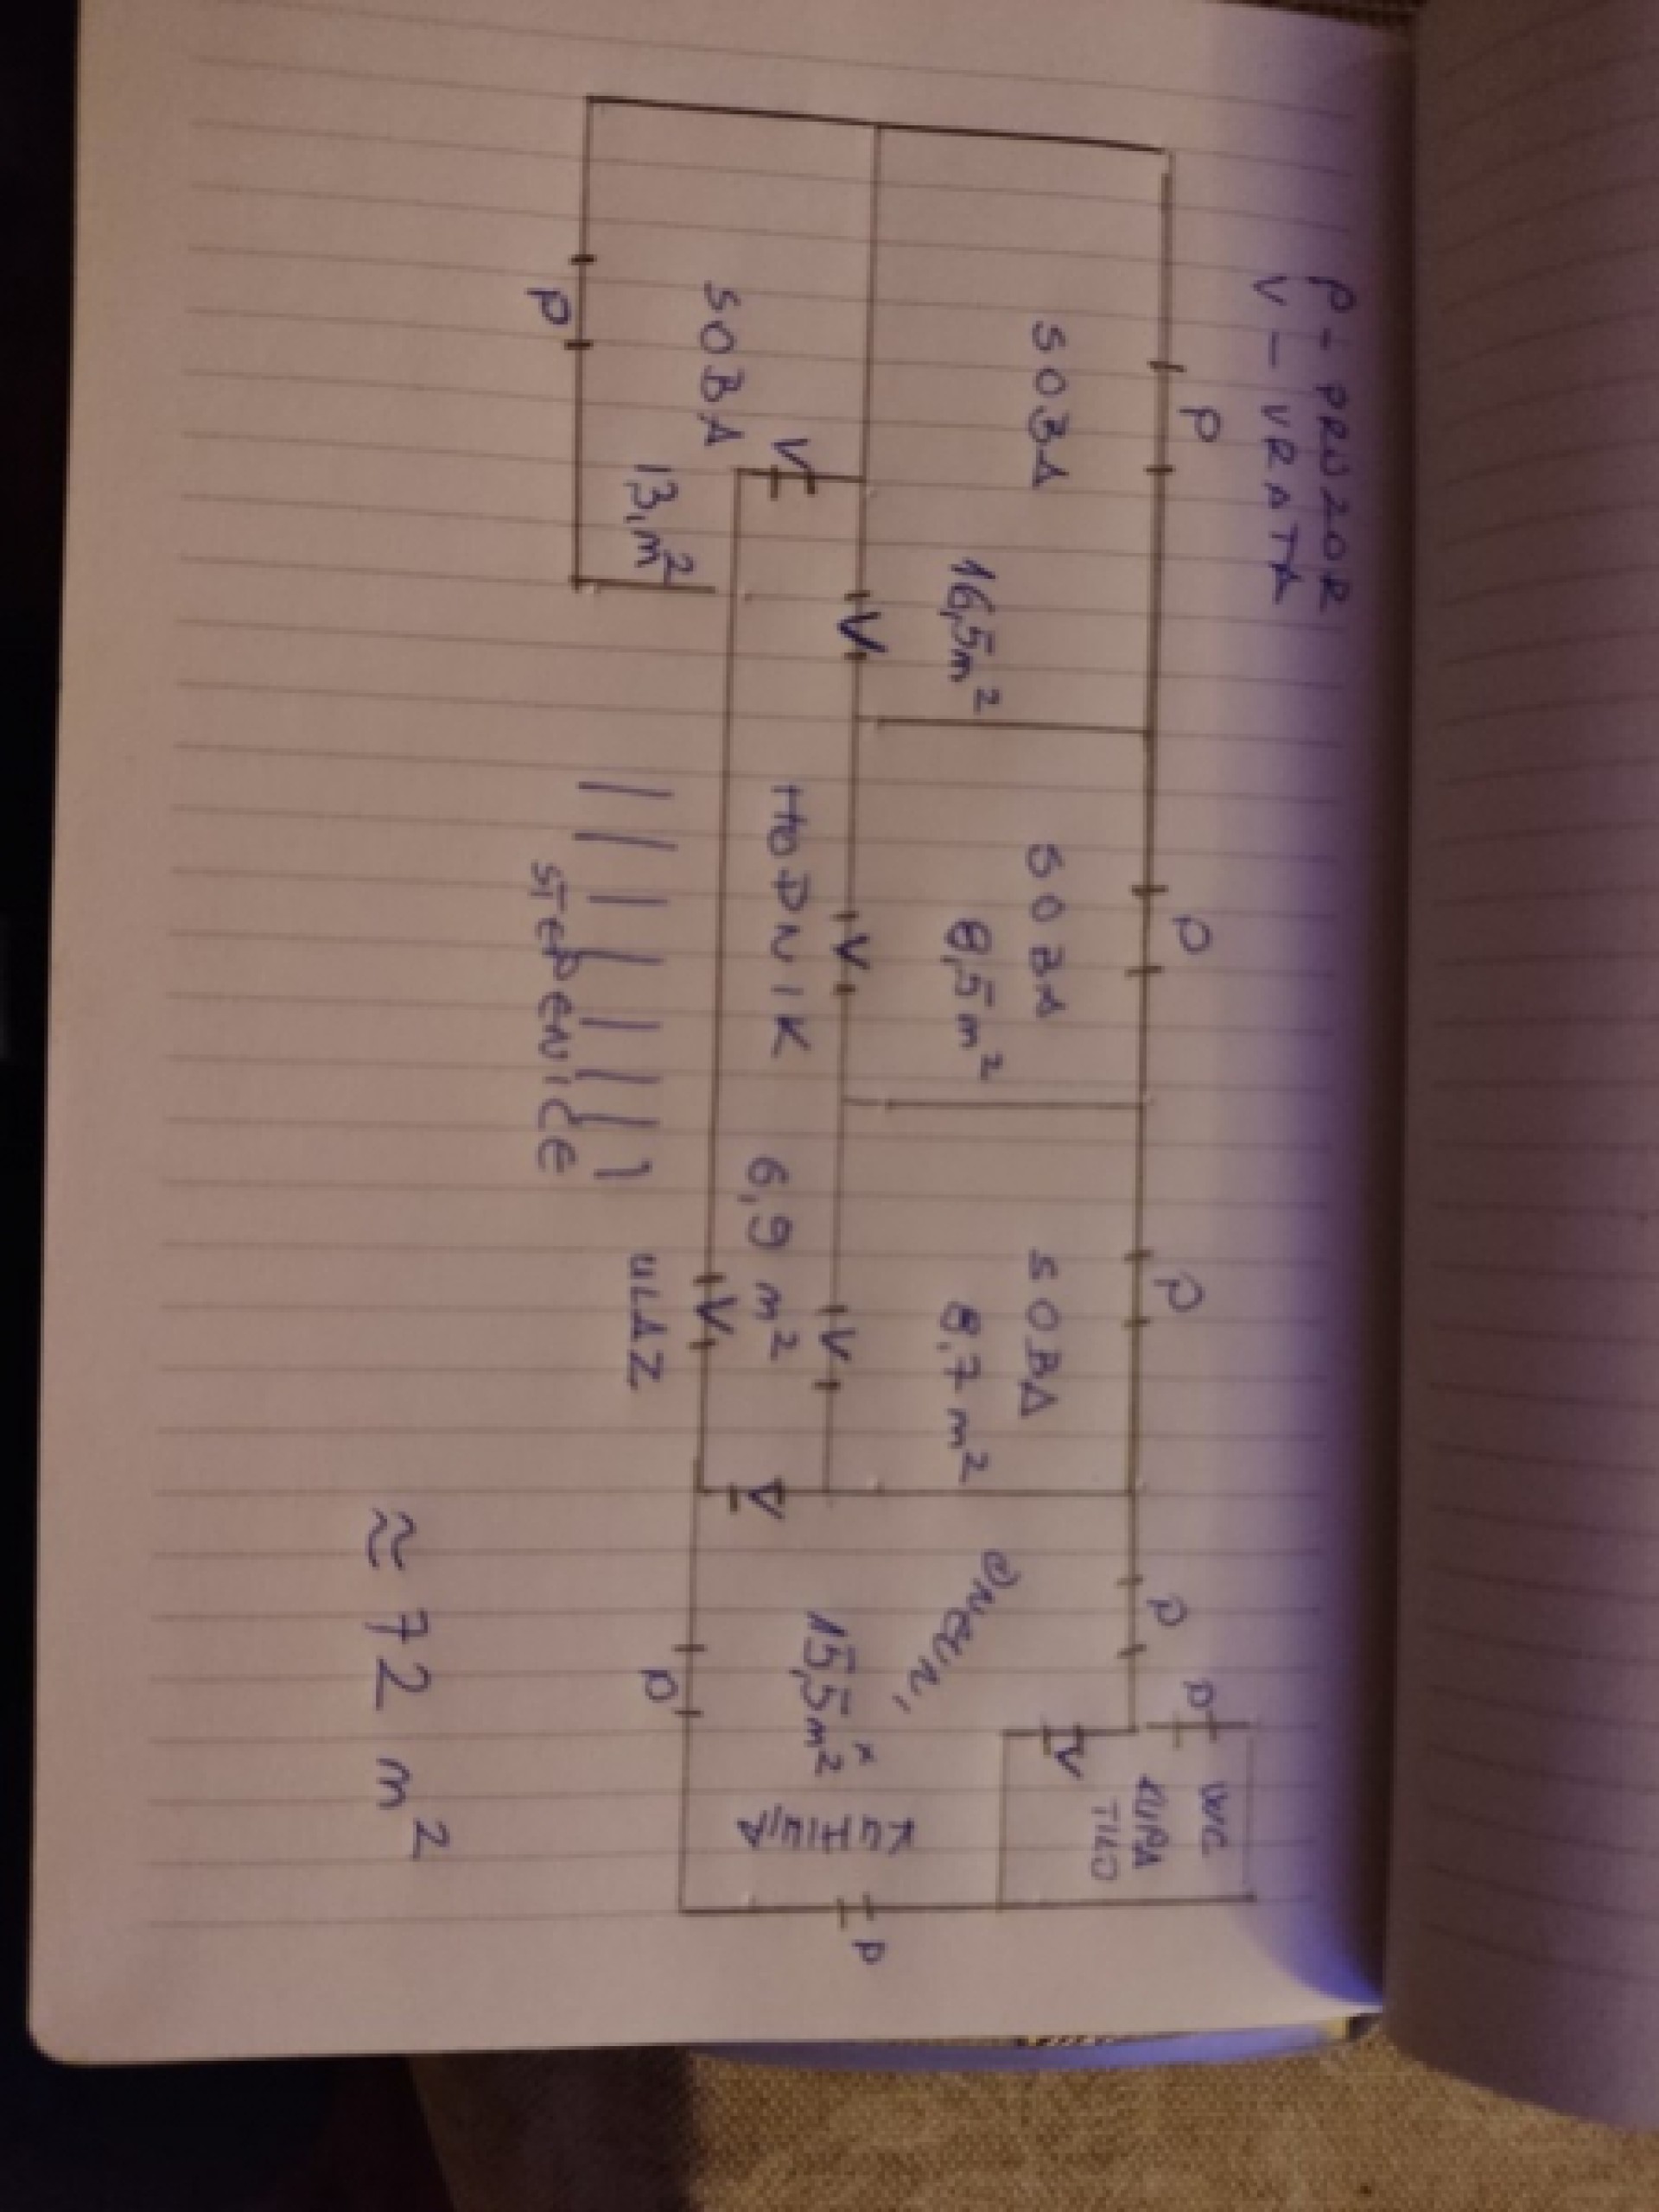 P - PROZOR
V - VRATA
P
P
P
P
P
SOBA
16,5m²
SOBA
8,5m²
SOBA
8,7m²
WC
KUPA
TILO
V
V
V
V
V
DNEVNI
15,5m²
KUHINJA
P
SOBA
13,m²
HODNIK 6,9 m²
V
V
P
STEPENICE
ULAZ
P
≈ 72 m²